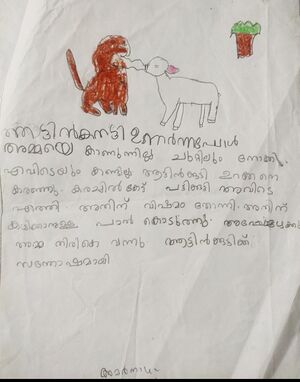 ആട്ടിൻകുട്ടി ഉണർന്നപ്പോൾ
അമ്മയെ കാണുന്നില്ല ചുറ്റിലും നോക്കി.
എവിടെയും കണ്ടില്ല ആട്ടിൻകുട്ടി ഉറക്കെ
കരഞ്ഞു. കരച്ചിൽ കേട്ട് പട്ടിക്കുട്ടി അവിടെ
എത്തി. അതിന് വിഷമം തോന്നി. അതിന്
കുടിക്കാനുള്ള പാൽ കൊടുത്തു. അപ്പോഴേക്കും
അമ്മ തിരികെ വന്നു ആട്ടിൻകുട്ടിക്ക്
സന്തോഷമായി
അമർനാഥ്